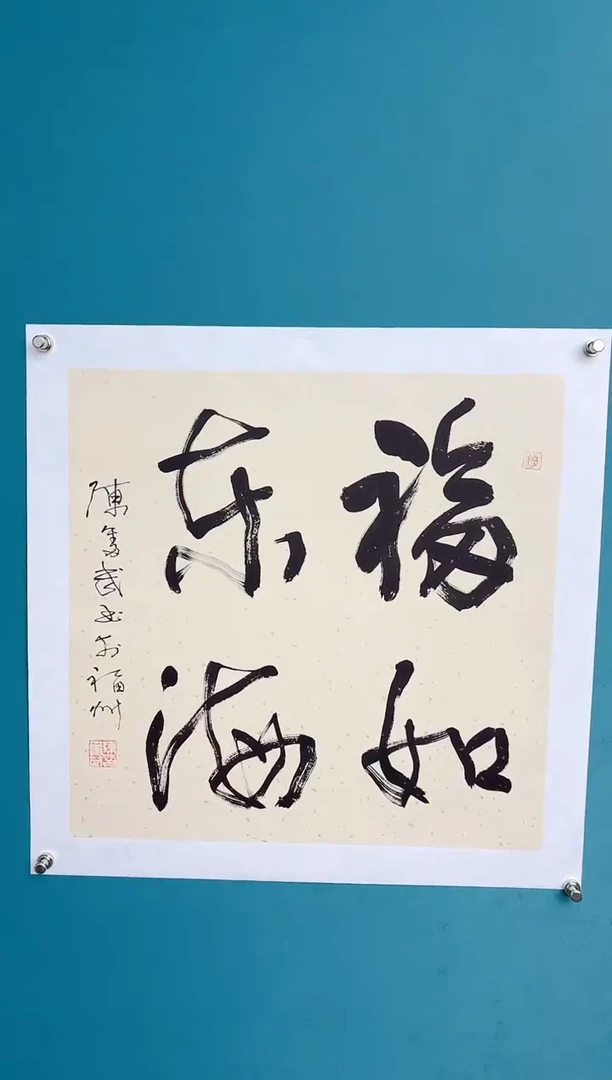 福如
东海
陳金武书于福州